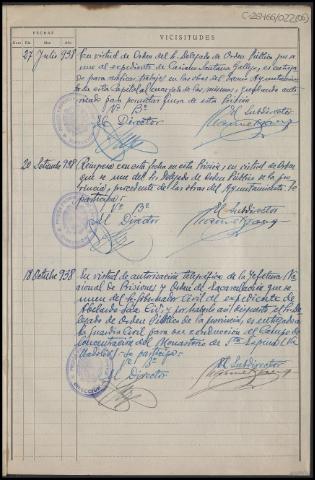 C-29466/022(06)
FECHAS
VICISITUDES
Hora Día Mes Año
27 Julio 938 En virtud de Orden del S. Delegado de Orden Público, que se
une al expediente de Casiano Santana Gallego, se
para realizar trabajos en las obras del Excmo Ayuntamiento
de esta Capital al
para pernoctar fuera de esta Prisión
Vº Bº El Subdirector
El Director
20 Setiembre 938 Reingresa con esta fecha en esta Prisión, en virtud de Orden
que se une del S. Delegado de Orden Público de la pro-
vincia, procedente de las obras del Ayuntamiento. Se
participa.
Vº Bº El Subdirector
El Director
18 Octubre 938 En virtud de autorización telegráfica de la Jefatura Na-
cional de Prisiones y Orden de excarcelación que se
unen del S. Gobernador Civil al expediente de
Abelardo y por haberlo así dispuesto el S. De-
legado de Orden Público de la provincia, es entregado a
la Guardia Civil para su conducción al Campo de
Concentración del Monasterio de Sta Espina (Va-
lladolid). Se participa.
Vº Bº El Subdirector
El Director